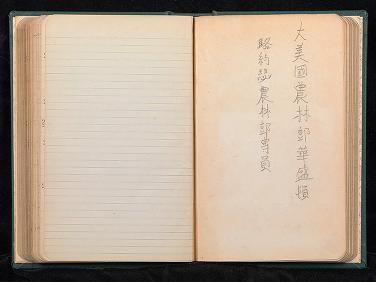 大美國農林部華盛頓
駱約瑟農林部專員